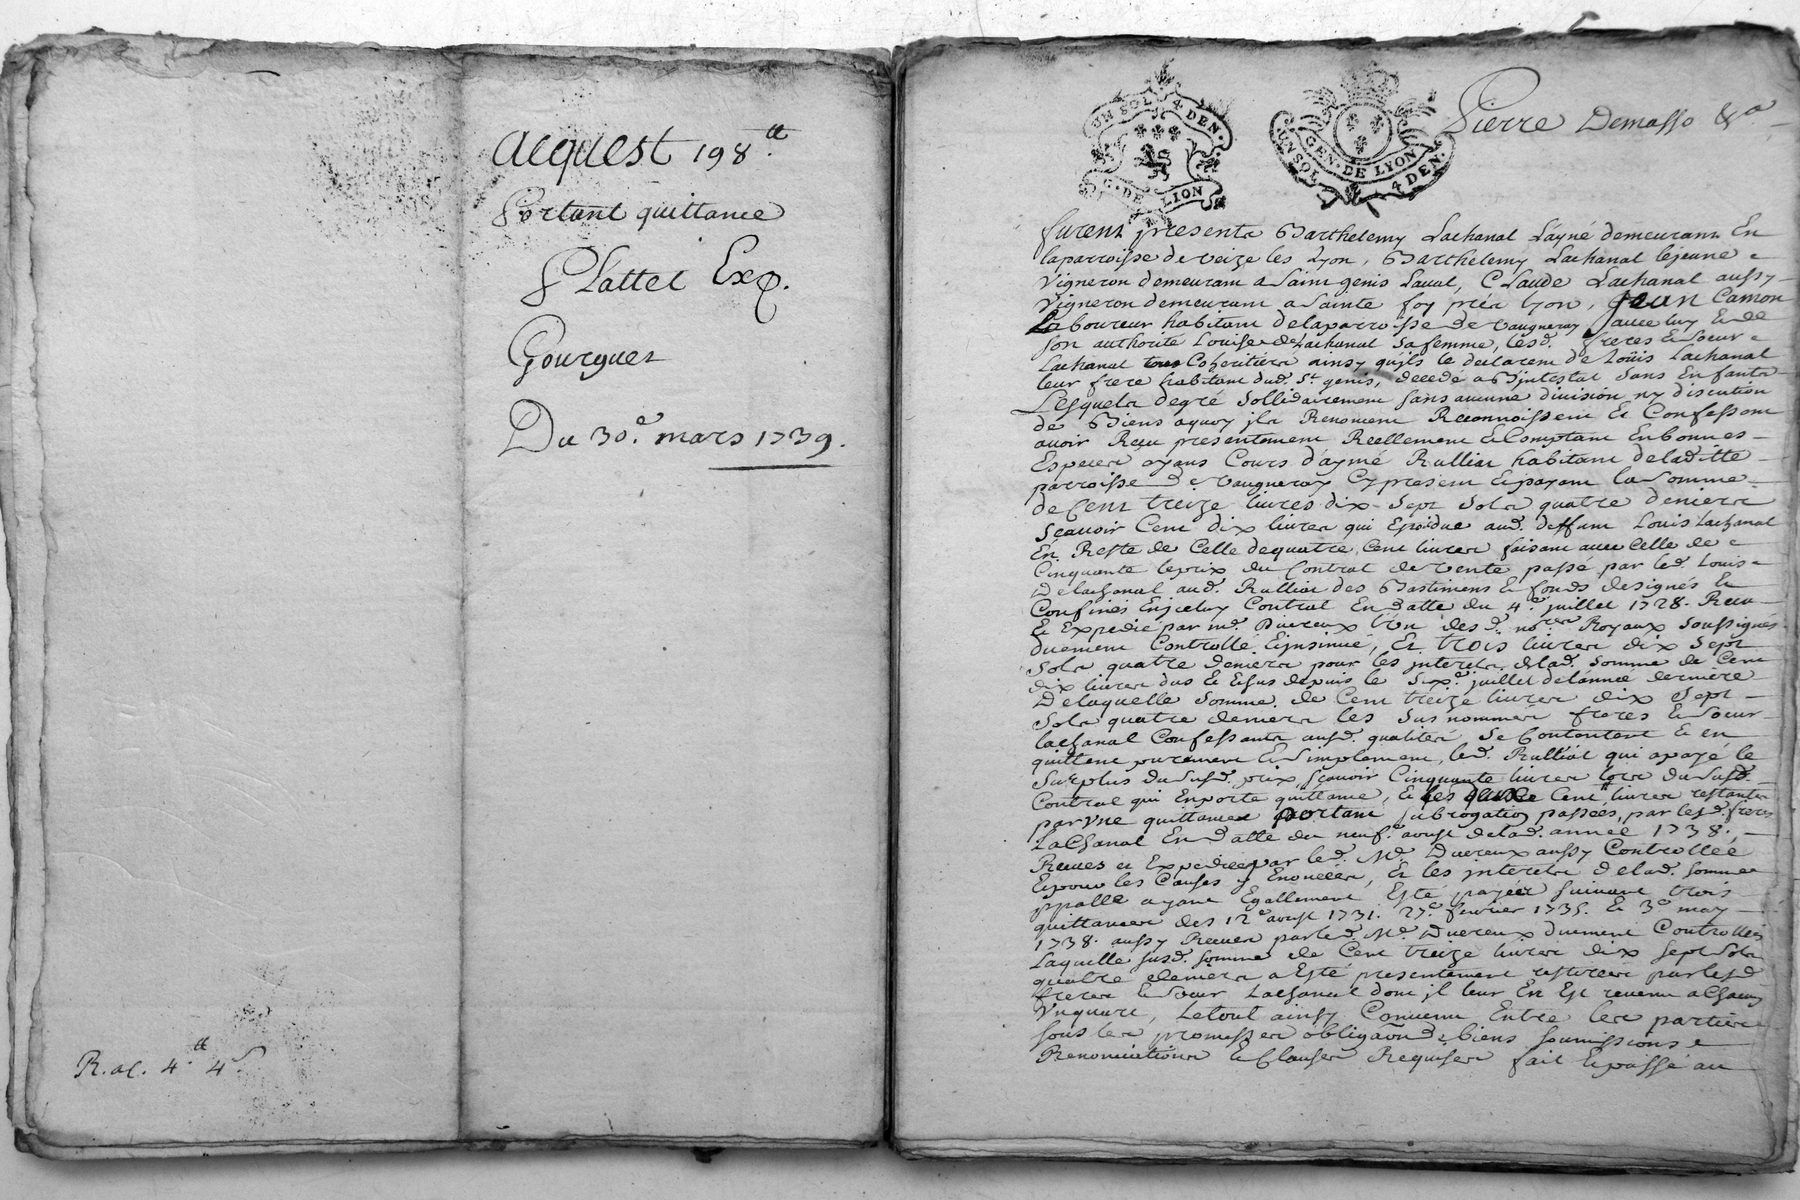 Acquest 198.tt
Portant quittance
Plattet Exp.
Gourguet
Du 30.e mars 1739.
R. ac. 4.tt 4.s
UN SOL 4 DEN.
G. DE LION
GEN. DE LYON
UN SOL 4 DEN.
Pierre Demasso &a
furent presents Barthelemy Lachanal L'ayné demeurant En
laparroisse de veize les Lyon, Barthelemy Lachanal lejeune
Vigneron demeurant a Saint genis Laval, Claude Lachanal aussy
Vigneron demeurant a Sainte foy prés lyon, Jean Camon
Laboureur habitant delaparroisse de vaugneray & avec luy & de
son authorité Louise de Lachanal sa femme, lesd. freres & soeur
Lachanal tous Coheritiers ainsy qu'jls le declarent de Loüis Lachanal
leur frere habitant dud. St. genis, decedé abjntestat sans Enfants
Lesquels degré sollidairement sans aucune division ny discution
de Biens aquoy jls Renoncent Reconnoissent & Confessent
avoir Receu presentement Reellement & Comptant En bonnes
Especes ayans Cours d'aymé Rulliat habitant deladitte
parroisse de vaugneray Cy present & payant la somme
de Cent treize livres dix-sept sols quatre deniers
sçavoir Cent dix livres qui Etoi due aud. deffunt Louis Lachanal
En Reste de Celle dequatre Cent livres faisant avec Celle de
Cinquante leprix du Contrat de vente passé par led. Louis
De lachanal aud. Rulliat des Bastimens & fonds designés &
Confinés Enjceluy Contrat En datte du 4.e juillet 1728. Receu
& Expedié par me. Duereux l'un des d. nores Royaux soussignes
duement Controllé & jnsinué, Et trois livres dix sept
sols quatre deniers pour les jnterets delad. somme de Cent
dix livres dus & Echus depuis le six.e juillet delannée derniere
Delaquelle somme de Cent treize livres dix sept
sols quatre deniers les sus nommés freres & soeur
lachanal Confessants ausd. qualités se Contentent & en
quittent purement & simplement led. Rulliat qui apayé le
surplus du susd. prix, sçavoir Cinquante livres lors du susd.
Contrat qui Enporte quittance, & les deux Cent livres restants
par vne quittance portant subrogation passées, par lesd. freres
Lachanal En datte du neuf.e aoust delad. année 1738.
Receues et Expediées par led. Me. Duereux aussy Controllée
& pour les Causes y Enoncées, & les jnterets delad. somme
ppalle ayant Egallement Esté payées suivant trois
quittances des 12.e aoust 1731. 27.e fevrier 1735. & 3.e may
1738. aussy Receues parled. Me. Duereux duement Controllées
Laquelle susd. somme de Cent treize livres dix sept sols
quatre deniers a Esté presentement retirée par lesd.
freres & soeur Lachanal dont jl leur En Est revenu a Chacun
Vnquart, Letout ainsy Convenu Entre les parties
sous les promesses obligaõns & biens soumissions
Renonciations & Clauses Requises fait & passé au